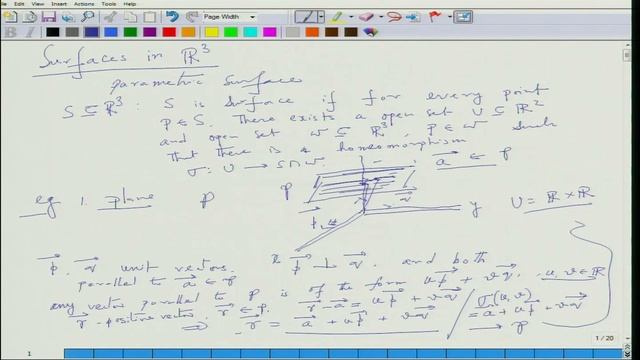 File View Insert Actions Tools Help
Page Width
Surfaces in ℝ³
parametric surface
S ⊆ ℝ³ : S is surface if for every point
p ∈ S. There exists a open set U ⊆ ℝ²
and open set W ⊆ ℝ³, p ∈ W such
that there is a homeomorphism
σ: U → S∩W.
a⃗ ∈ P
eg 1. plane P
P
y
U = ℝ × ℝ
p⃗, q⃗ unit vectors. p⃗ ⊥ q⃗ and both
parallel to
any vector parallel to P is of the form up⃗ + vq⃗, u, v ∈ ℝ
r⃗ - positive vector, r⃗ ∈ P. r⃗ - a⃗ = up⃗ + vq⃗
⇒ r⃗ = a⃗ + up⃗ + vq⃗
σ(u,v)
= a⃗ + up⃗ + vq⃗
→ P
1 / 20
1